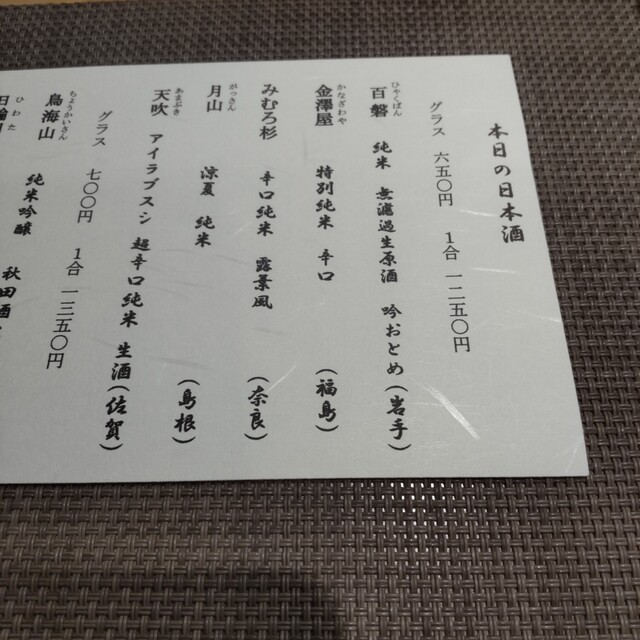 本日の日本酒
グラス 六五〇円 1合 一二五〇円
ひゃくばん
百磐 純米 無濾過生原酒 吟おとめ (岩手)
かなざわや
金澤屋 特別純米 辛口 (福島)
みむろ杉 辛口純米 露葉風 (奈良)
がっさん
月山 涼夏 純米 (島根)
あまぶき
天吹 アイラブスシ 超辛口純米 生酒 (佐賀)
グラス 七〇〇円 1合 一三五〇円
ちょうかいさん
鳥海山 純米吟醸
ひわた
秋田酒